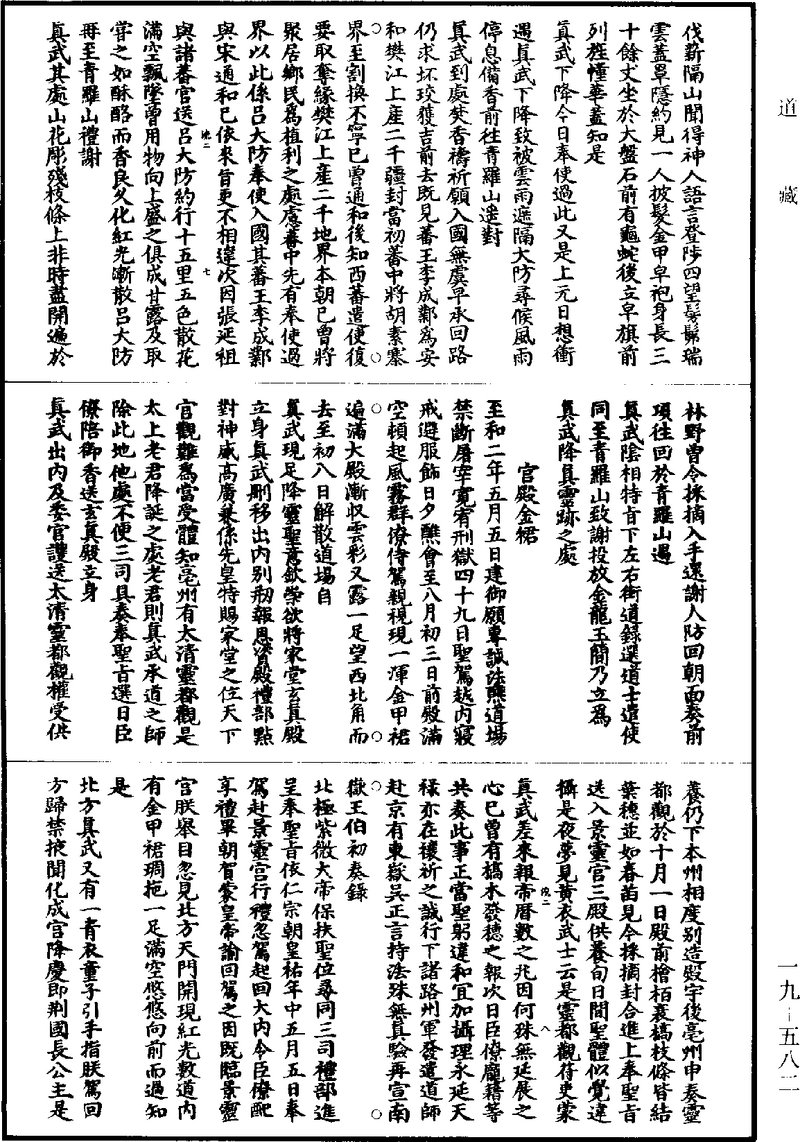 道藏
伐薪隔山聞得神人語言登陟四望髣髴瑞
雲蓋罩隱約見一人披髮金甲皁袍身長三
十餘丈坐於大盤石前有龜蛇後立皁旗前
列旌幢華蓋知是
真武下降今日奉使過此又是上元日想衝
遇真武下降致被雲雨遮隔大防尋候風雨
停息備香前往青羅山遙對
真武到處焚香禱祈願入國無虞早承回路
仍求坏珓獲吉前去既見蕃王李成鄴為安
和樊江上産二千疆封當初蕃中將胡素寨
界至割換不寧已曾通和後知西蕃遣使復
要取奪緣樊江上産二千地界本朝已曾將
聚居鄉民為植利之處慮蕃中先有奉使過
界以此係呂大防奉使入國其蕃王李成鄴
與宋通和已依來旨更不相違次因張延祖
與諸蕃官送呂大防約行十五里五色散花
滿空飄墜曾用物向上盛之俱成甘露及取
嘗之如酥酪而香良久化紅光漸散呂大防
再至青羅山禮謝
真武其處山花彫殘枝條上非時盡開遍於
林野曾令採摘入手還謝人防回朝面奏前
項往回於青羅山遇
真武陰相特旨下左右街道錄選道士遣使
同至青羅山致謝投放金龍玉簡乃立為
真武降真靈跡之處
宮殿金裙
至和二年五月五日建御願專誠法醮道場
禁斷屠宰寬宥刑獄四十九日聖駕越内寢
戒避服飾日夕醮會至八月初三日前殿滿
空頓起風霧群僚侍駕親視現一渾金甲裙
遍滿大殿漸收雲彩又露一足望西北角而
去至初八日解散道場自
真武現足降靈聖意欽崇欲將家堂玄真殿
立身真武刪移出内别剏報恩資殿禮部點
對神威高廣兼係先皇特賜家堂之位天下
官觀難為當受體知亳州有太清靈都觀是
太上老君降誕之處老君則真武承道之師
除此地他處不便三司具奏奉聖旨選日臣
僚陪御香送玄真殿立身
真武出内及委官護送太清靈都觀權受供
養仍下本州相度别造殿宇後亳州申奏靈
都觀於十月一日殿前檜栢衰槁枝條皆結
葉穗並如春苗見今採摘封合進上奉聖旨
送入景靈宫三殿供養旬日間聖體似覺違
攝是夜夢見黄衣武士云是靈都觀符吏蒙
真武差來報帝曆數之兆因何殊無延展之
心已曾有槁木發穗之報次日臣僚龐籍等
共奏此事正當聖躬違和宜加攝理永延天
祿亦在禳祈之誠行下諸路州軍發遣道師
赴京有東嶽吳正言持法殊無真驗再宣南
嶽王伯初奏錄
北極紫微大帝保扶聖位尋同三司禮部進
呈奉聖旨依仁宗朝皇祐年中五月五日奉
駕赴景靈宫行禮忽駕起回大内令臣僚配
享禮畢朝賀蒙皇帝諭回駕之因既臨景靈
宫朕舉目忽見北方天門開現紅光數道内
有金甲裙裯拖一足滿空悠悠向前而過知
是
北方真武又有一青衣童子引手指朕駕回
方歸禁掖聞化成宫降慶即荆國長公主是
一九—五八二